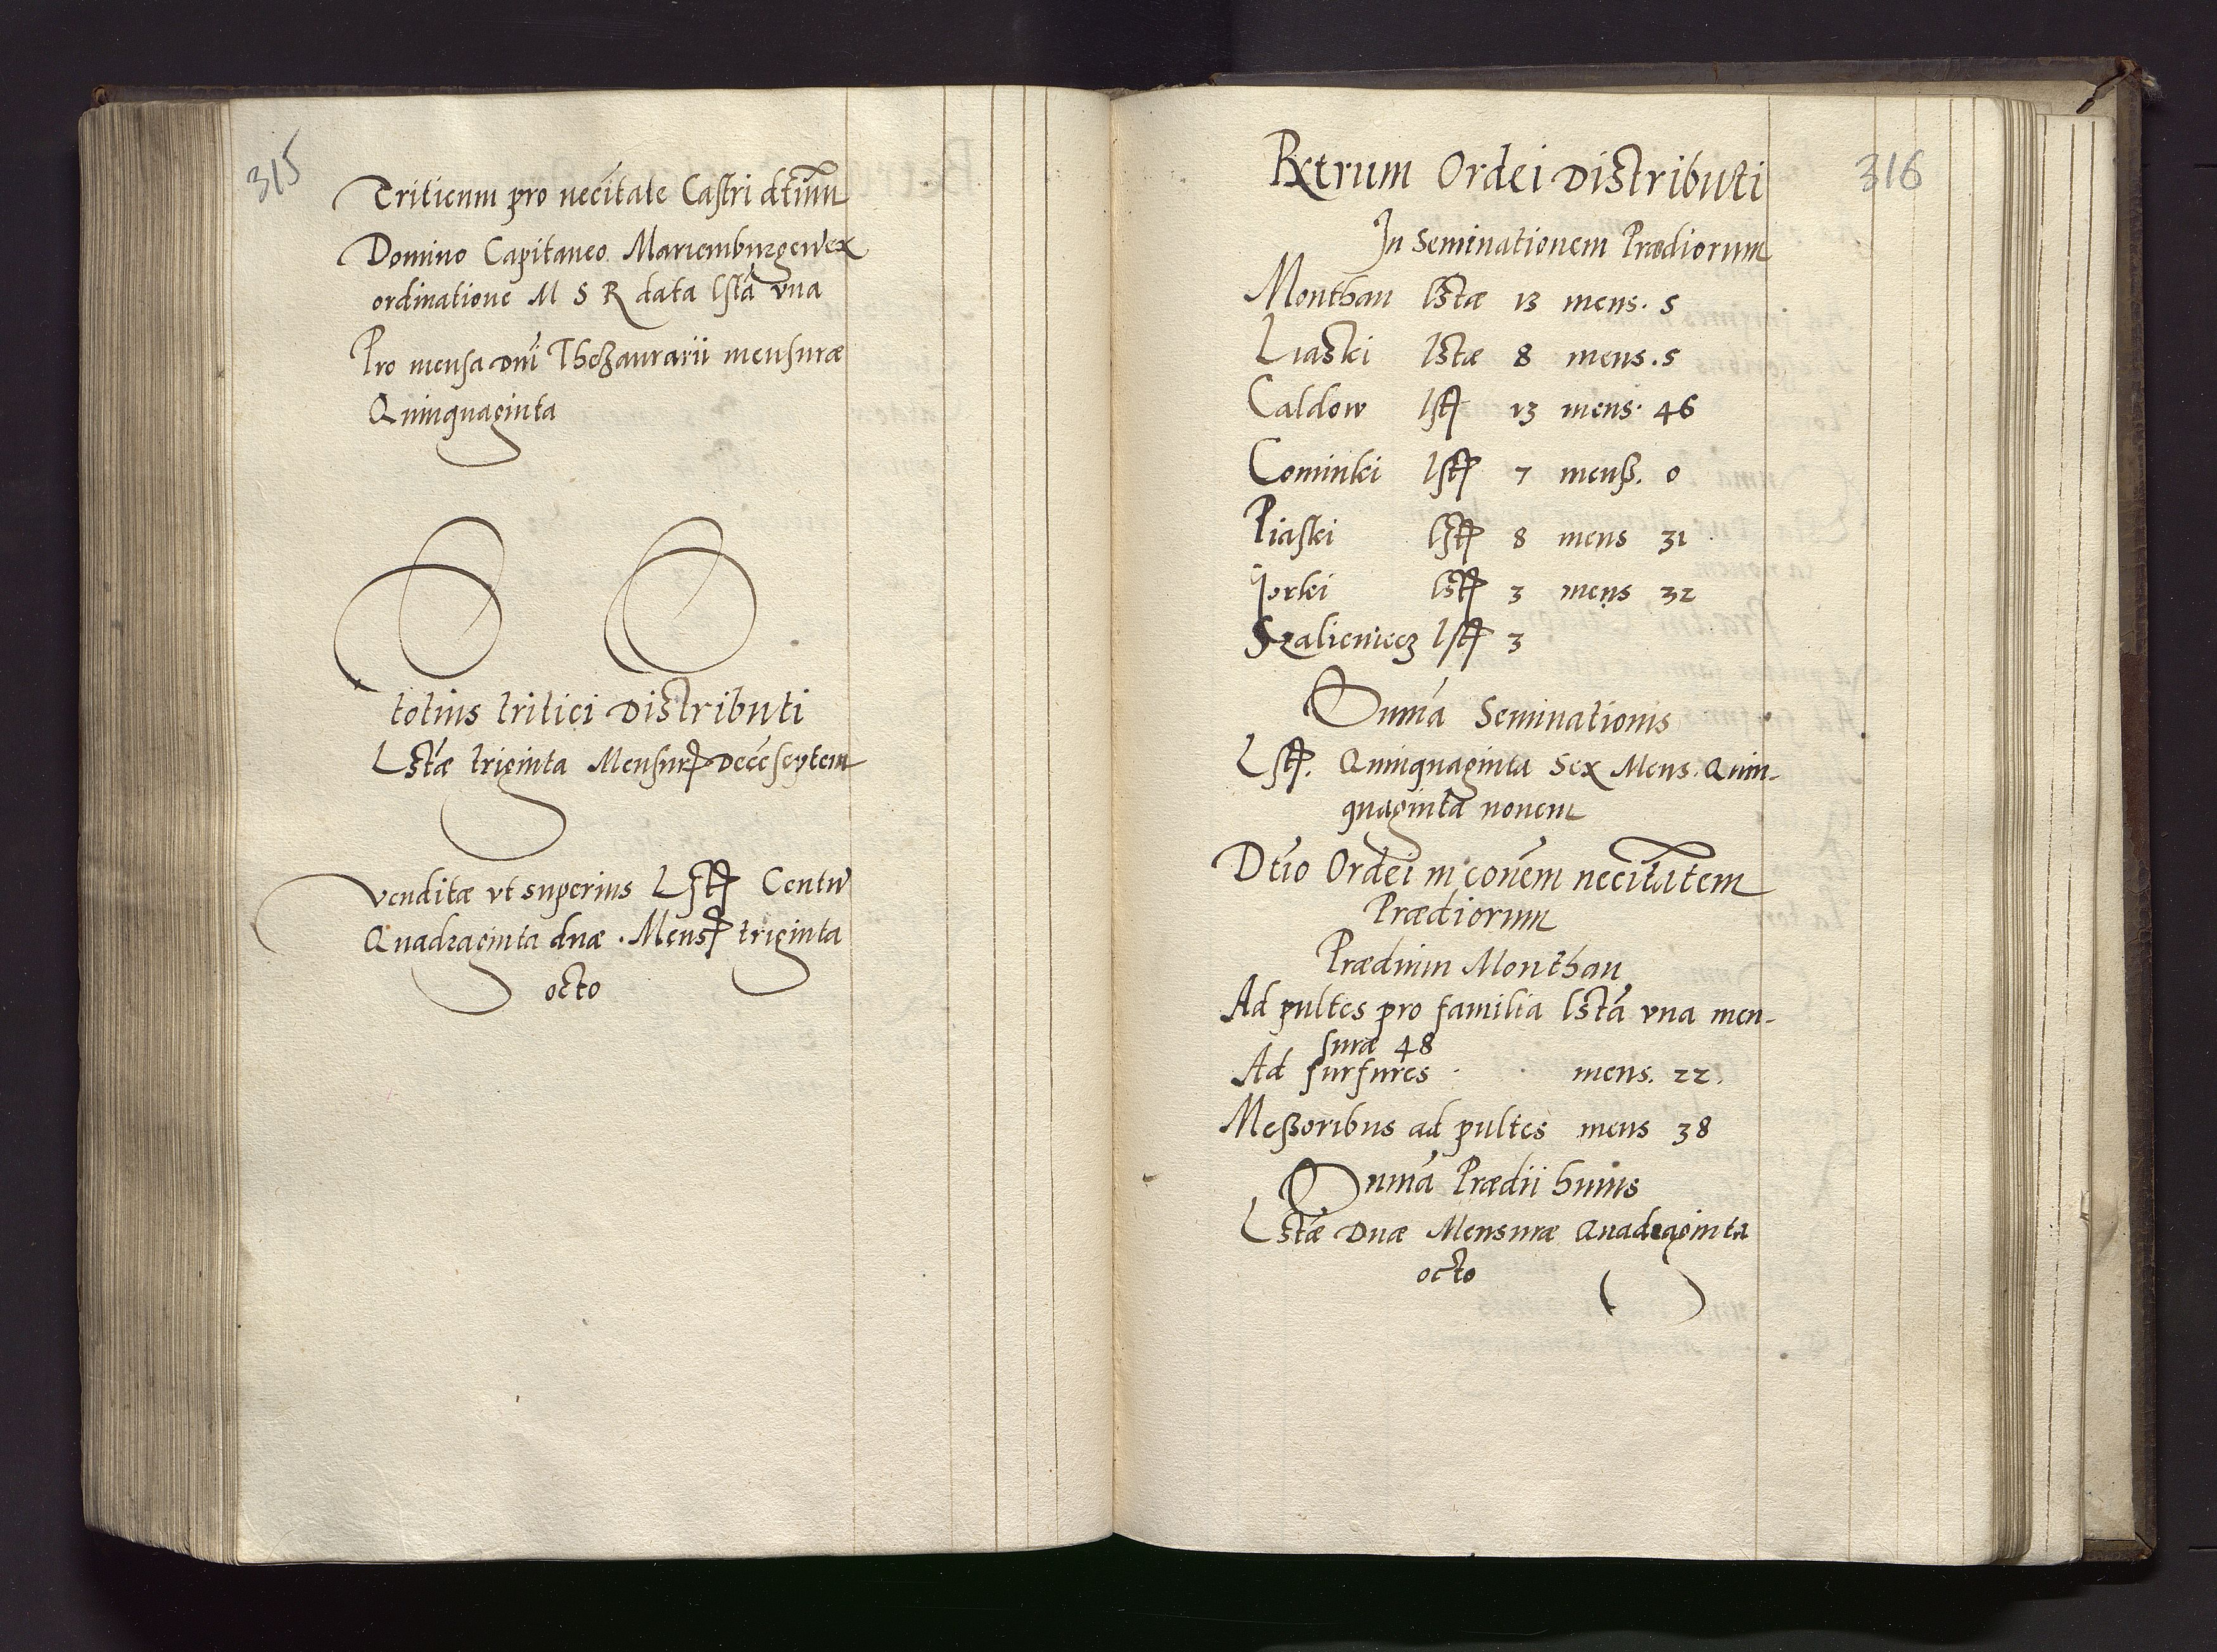 315
Triticum pro necitate Castri dtium
Domino Capitaneo Mariemburgen ex
ordinatione M S R data lsta vna
Pro mensa dni Thesaurarii mensuræ
Quinquaginta
totius tritici distributi
Lstæ triginta Mensur decesseptem
venditæ vt superius Lst Centu
Quadraginta duæ . Mens triginta
octo
316
Rxtrum Ordei distributi
In Seminationem Prædiorum
Monthau lstæ 13 mens. 5
Liaski lstæ 8 mens. 5
Caldow lst 13 mens. 46
Cominki lst 7 menß. 0
Piaski lst 8 mens 31
Jorki lst 3 mens 32
Szalieniecz lst 3
Suma Seminationis
Lst. Quinquaginta Sex Mens. Quin-
quaginta nouem
Dtio Ordei in couem necitatem
Prædiorum
Prædium Monthau
Ad pultes pro familia lsta vna men-
suræ 48
Ad furfures mens. 22.
Meßoribus ad pultes mens 38
Suma Prædii huius
Lstæ Duæ Mensuræ Quadraginta
octo